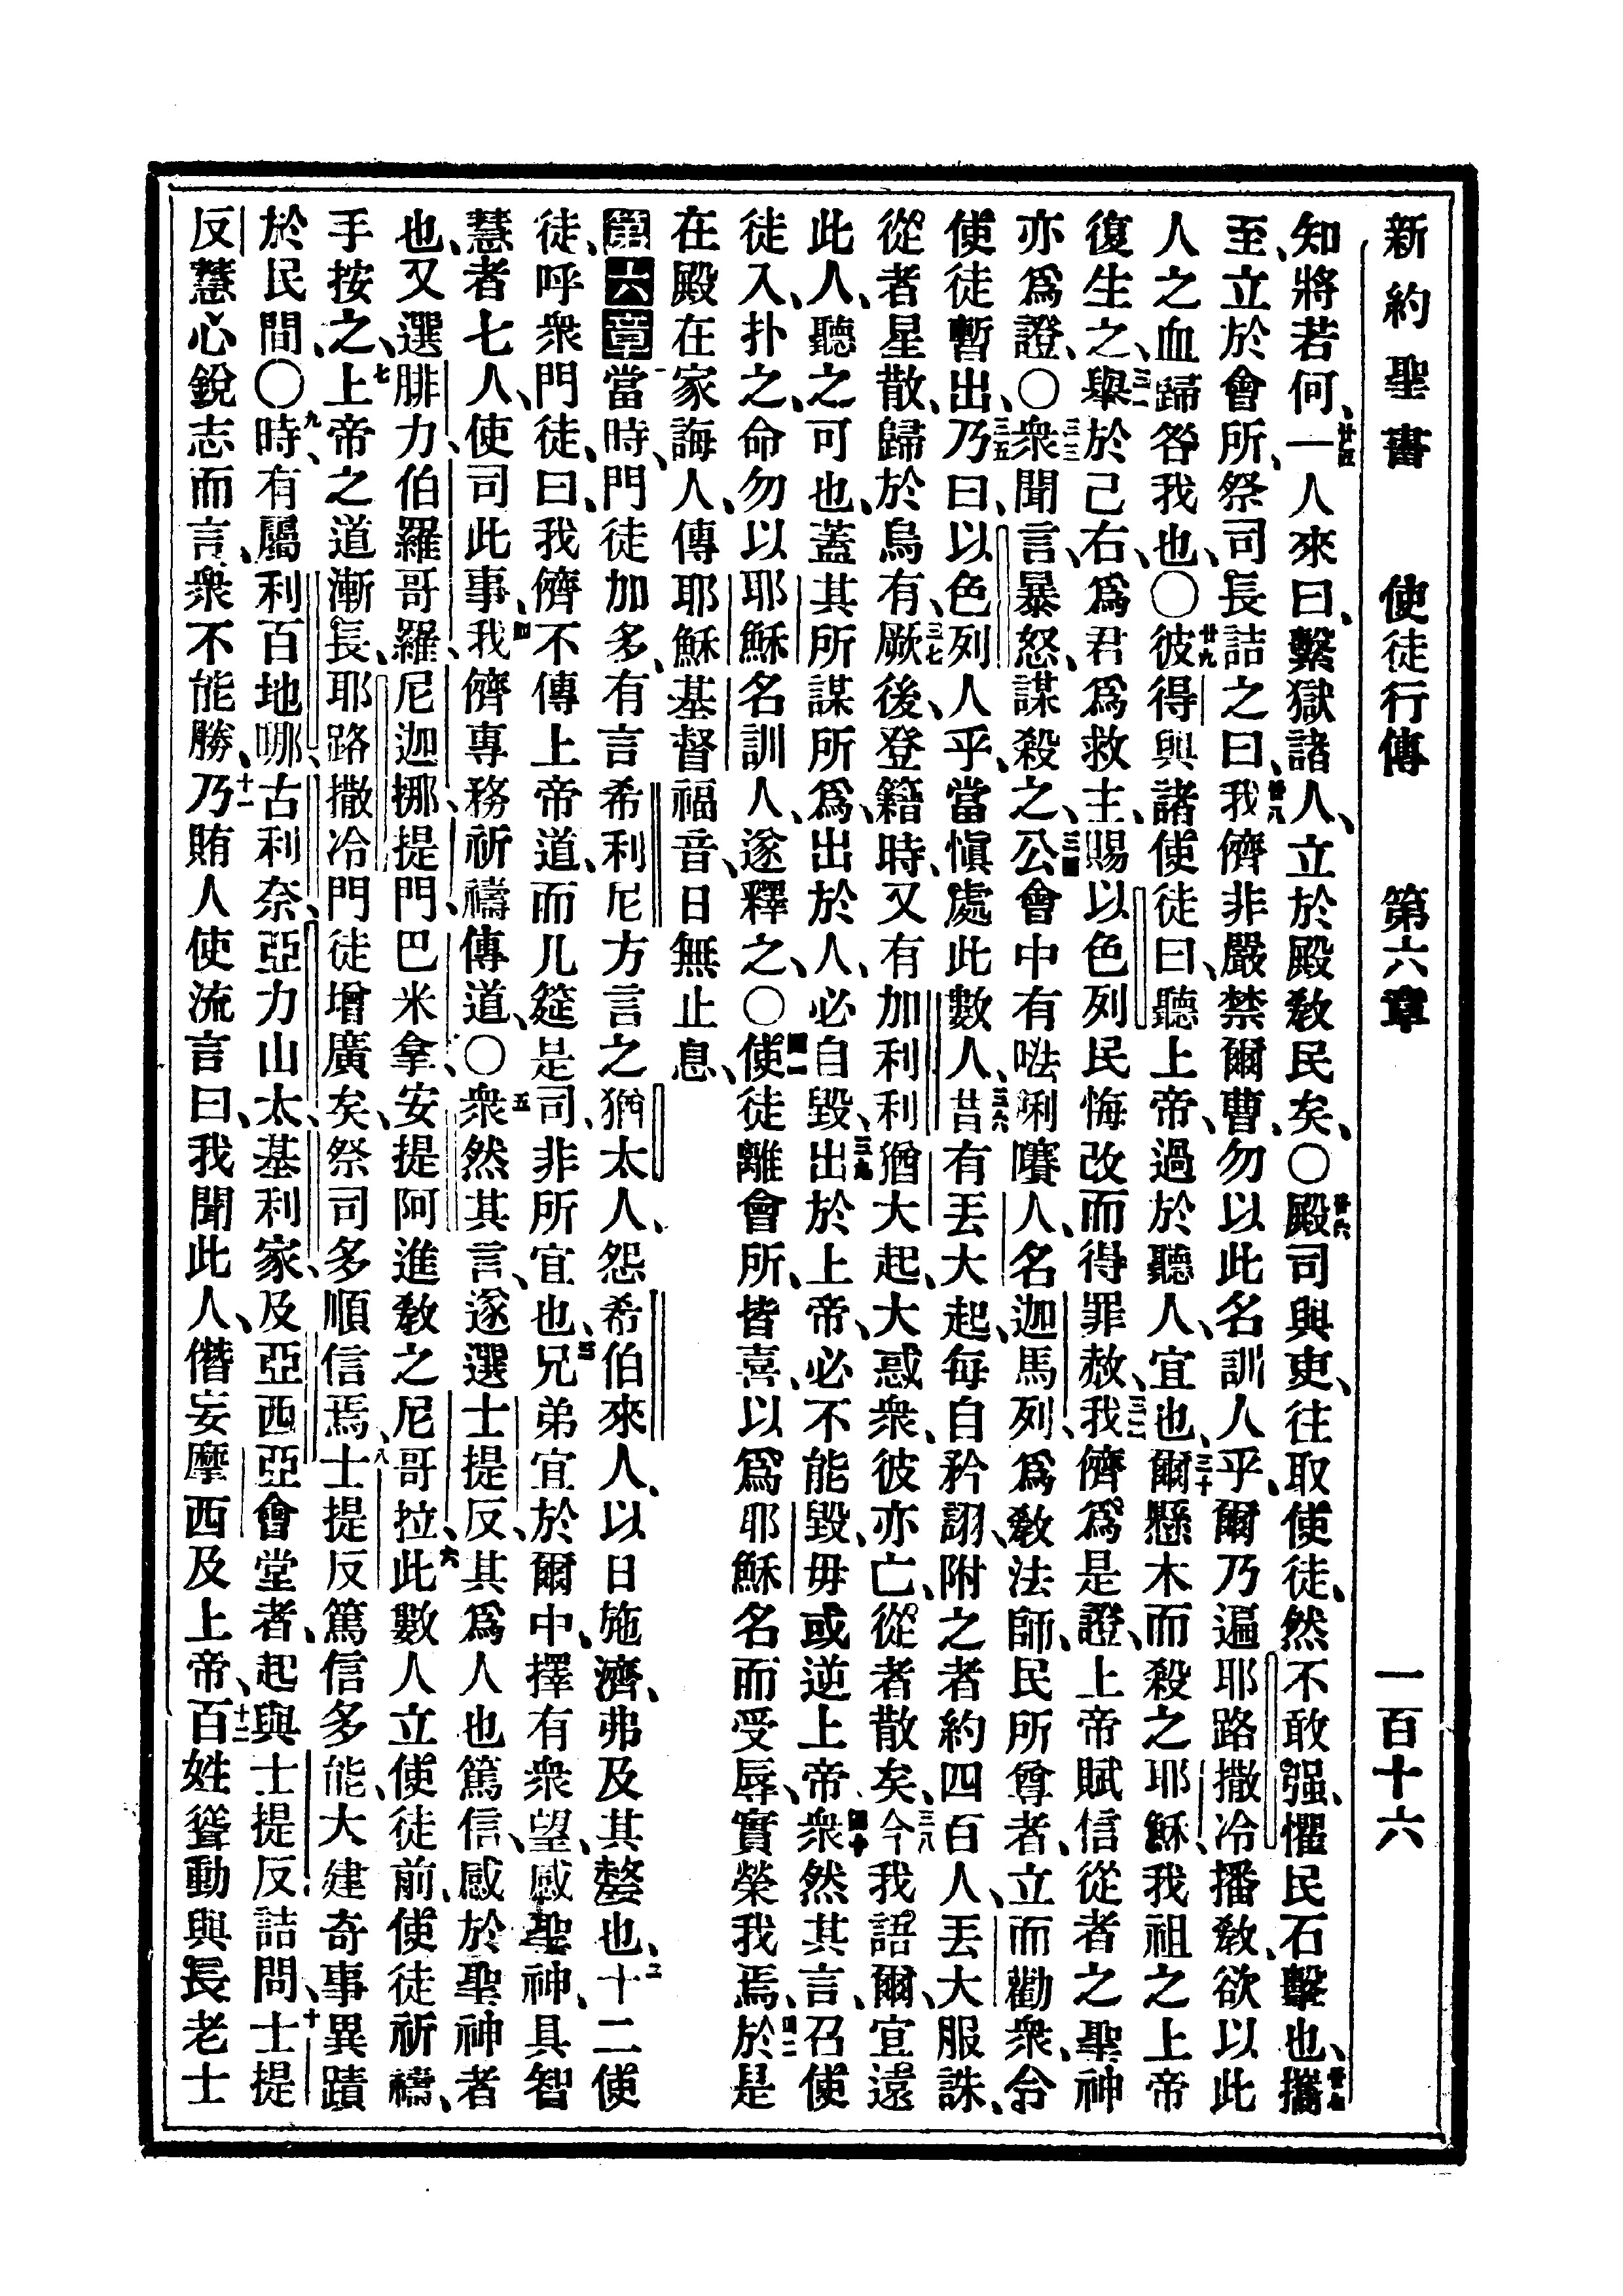 新約聖書 使徒行傳 第六章 一百十六
知將若何、廿五一人來曰、繫獄諸人、立於殿敎民矣、〇廿六殿司與吏、往取使徒、然不敢强、懼民石擊也、廿七攜
至、立於會所、祭司長詰之曰、廿八我儕非嚴禁爾曹、勿以此名訓人乎、爾乃遍耶路撒冷播敎、欲以此
人之血歸咎我也、〇廿九彼得與諸使徒曰、聽上帝、過於聽人、宜也、三十爾懸木而殺之耶穌、我祖之上帝
復生之、三一舉於己右、爲君爲救主、賜以色列民悔改而得罪赦、三二我儕爲是證、上帝賦信從者之聖神
亦爲證、〇三三衆聞言、暴怒、謀殺之、三四公會中有𠵽唎㘔人、名迦馬列、爲敎法師、民所尊者、立而勸衆、令
使徒暫出、三五乃曰、以色列人乎、當愼處此數人、三六昔有丟大起、每自矜詡、附之者約四百人、丟大服誅、
從者星散、歸於烏有、三七厥後、登籍時、又有加利利猶大起、大惑衆、彼亦亡、從者散矣、三八今我語爾、宜遠
此人、聽之可也、蓋其所謀所爲、出於人、必自毀、三九出於上帝、必不能毀、毋或逆上帝、四十衆然其言、召使
徒入、扑之、命勿以耶穌名訓人、遂釋之、〇四一使徒離會所、皆喜、以爲耶穌名而受辱、實榮我焉、四二於是
在殿在家誨人、傳耶穌基督福音、日無止息、
第六章一當時、門徒加多、有言希利尼方言之猶太人、怨希伯來人、以日施濟、弗及其嫠也、二十二使
徒、呼衆門徒、曰、我儕不傳上帝道、而几筵是司、非所宜也、三兄弟宜於爾中、擇有衆望、感聖神、具智
慧者七人、使司此事、四我儕專務祈禱傳道、〇五衆然其言、遂選士提反、其爲人也篤信、感於聖神者
也、又選腓力、伯羅哥羅、尼迦挪、提門、巴米拿、安提阿進敎之尼哥拉、六此數人立使徒前、使徒祈禱、
手按之、七上帝之道漸長、耶路撒冷門徒增廣矣、祭司多順信焉、八士提反篤信多能、大建奇事異蹟
於民間、〇九時、有屬利百地哪、古利奈、亞力山太、基利家、及亞西亞會堂者、起與士提反詰問、十士提
反慧心銳志而言、衆不能勝、十一乃賄人使流言曰、我聞此人、僭妄摩西及上帝、十二百姓聳動與長老士